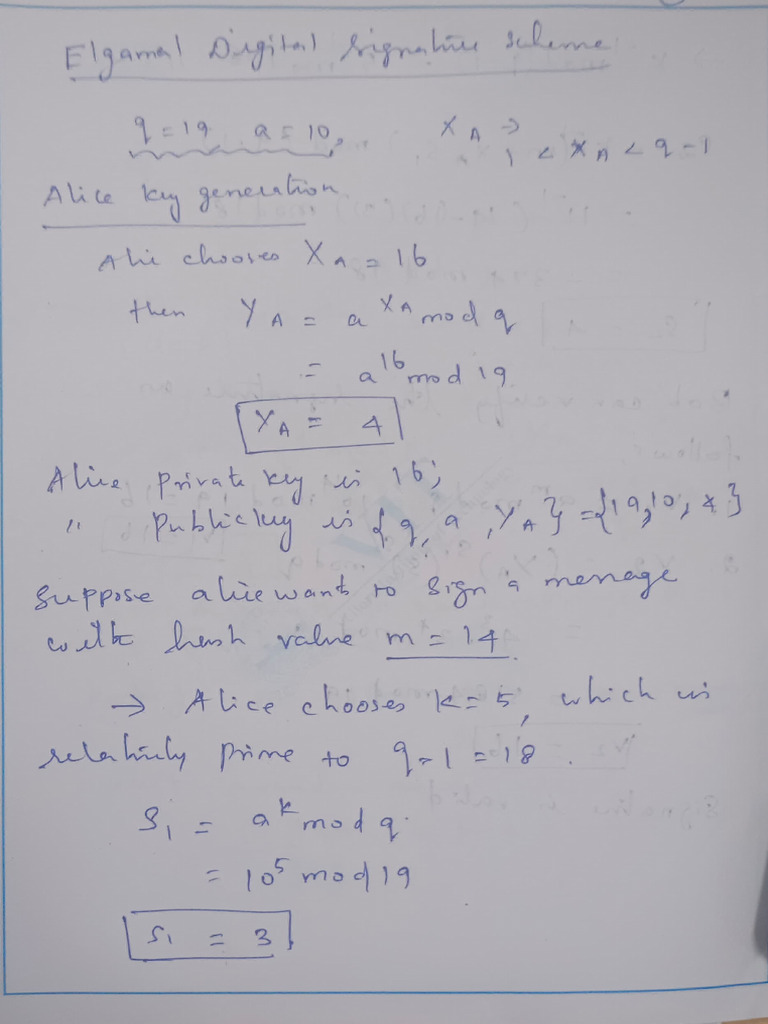 Elgamal Digital Signature Scheme
q = 19 a = 10, X_A →
1 < X_A < q - 1
Alice key generation
Alie chooses X_A = 16
then Y_A = a^X_A mod q
= a^16 mod 19
Y_A = 4
Alice private key is 16;
" Public key is {q, a, Y_A} = {19, 10, 4}
Suppose alice want to sign a message
with hash value m = 14.
→ Alice chooses k = 5, which is
relatively prime to q - 1 = 18.
S_1 = a^k mod q.
= 10^5 mod 19
S_1 = 3